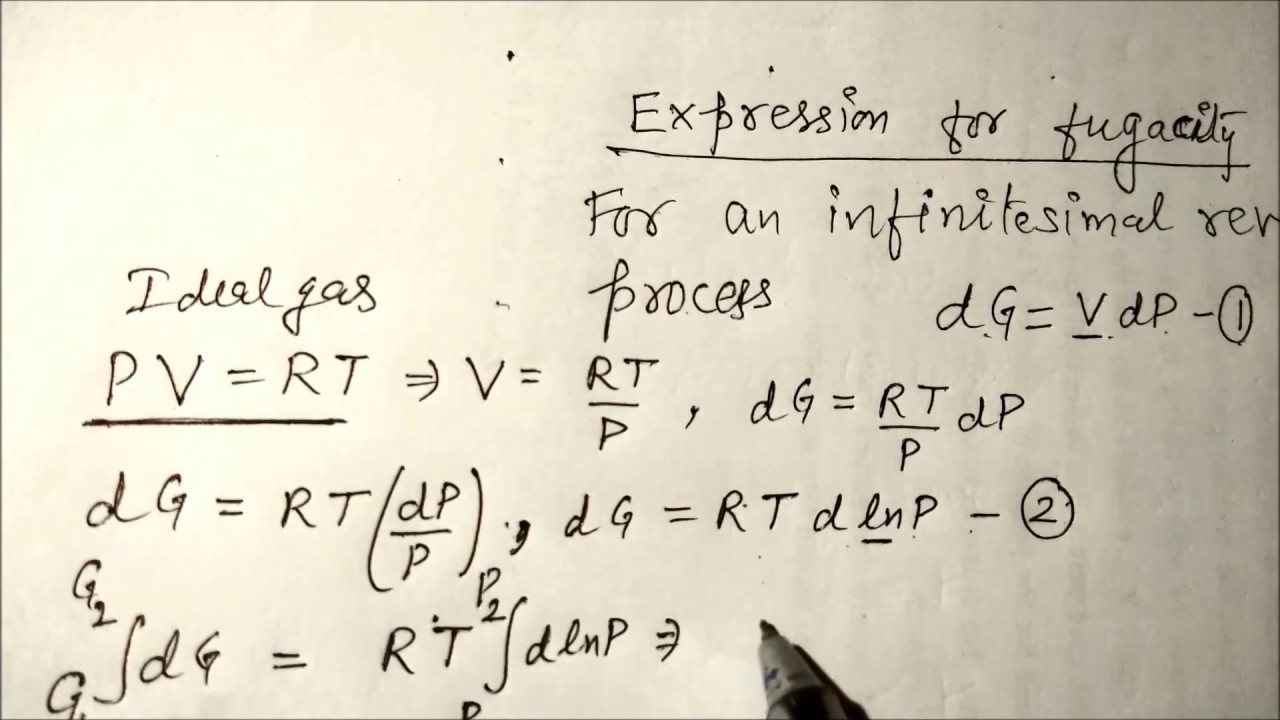 Expression for fugacity
For an infinitesimal rev
Ideal gas process dG = V dP - ①
PV = RT ⇒ V = RT/P , dG = RT/P dP
dG = RT(dP/P) , dG = RT d lnP - ②
∫_G₁^G₂ dG = RT ∫_P^P₂ d lnP ⇒